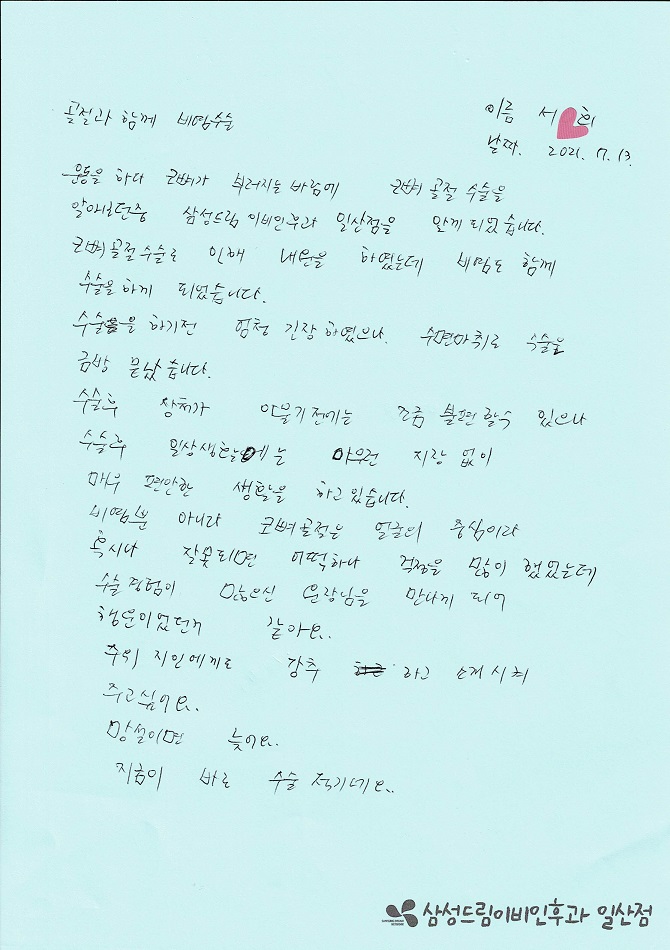 골절과 함께 비염수술
이름 서 희
날짜. 2021. 7. 13.
운동을 하다 코뼈가 부러지는 바람에 코뼈 골절 수술을
알아보던중 삼성드림 이비인후과 일산점을 알게 되었습니다.
코뼈 골절 수술로 인해 내원을 하였는데 비염도 함께
수술을 하게 되었습니다.
수술을 하기전 엄청 긴장 하였으나. 수면마취로 수술을
금방 끝났습니다.
수술후 상처가 아물기 전에는 조금 불편 할수 있으나
수술후 일상생활에는 아무런 지장 없이
매우 편안한 생활을 하고 있습니다.
비염뿐 아니라 코뼈골절은 얼굴의 중심이라
혹시나 잘못되면 어떡하나 걱정을 많이 했었는데
수술 경험이 많으신 원장님을 만나게 되어
행운이었던거 같아요..
주위 지인에게도 강추 라고 소개시켜
주고싶어요..
망설이면 늦어요..
지금이 바로 수술 적기네요..
삼성드림이비인후과 일산점